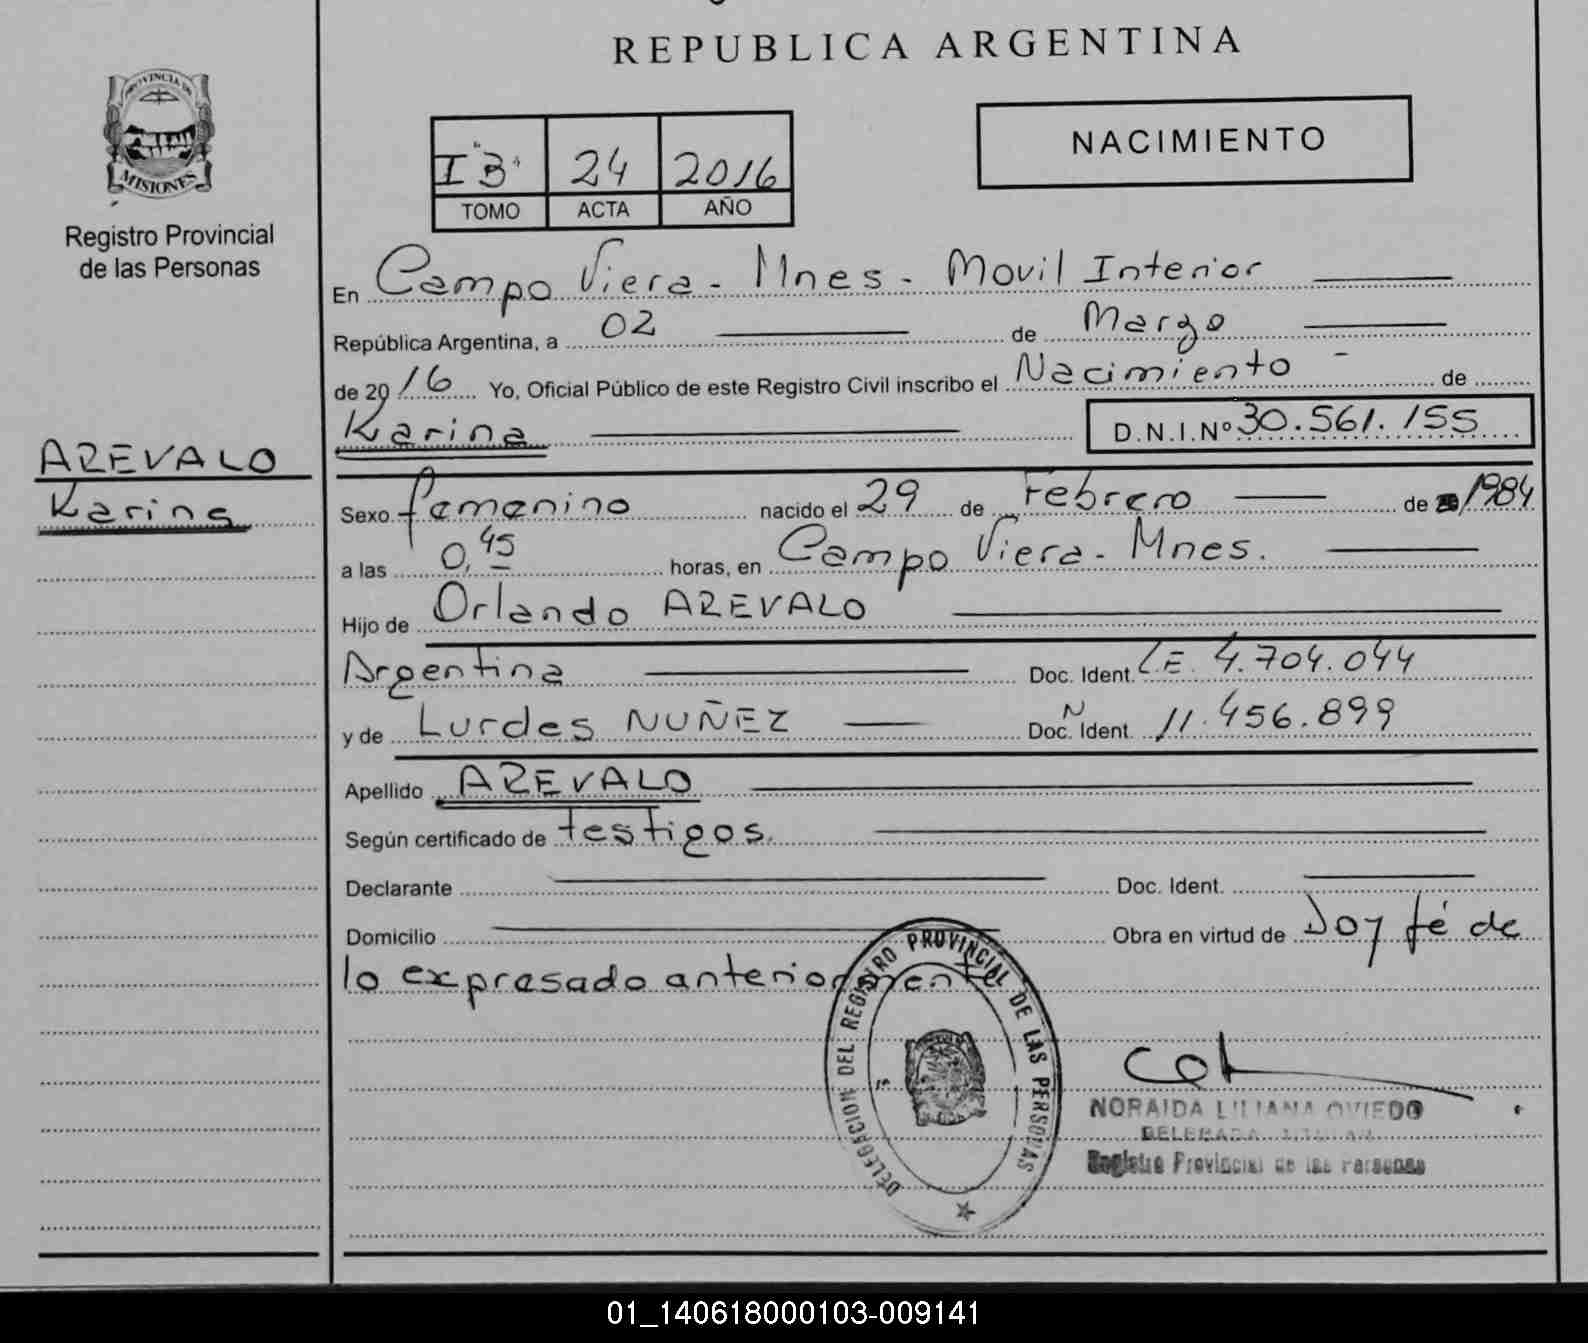 REPUBLICA ARGENTINA
PROVINCIA DE
MISIONES
Registro Provincial
de las Personas
I "B" 24 2016
TOMO ACTA AÑO
NACIMIENTO
En Campo Viera - Mnes - Movil Interior
República Argentina, a 02 de Marzo
de 2016 Yo, Oficial Público de este Registro Civil inscribo el Nacimiento - de
Karina D.N.I.Nº 30.561.155
AREVALO
Karina
Sexo femenino nacido el 29 de Febrero de 1984
a las 0,45 horas, en Campo Viera - Mnes.
Hijo de Orlando AREVALO
Argentina Doc. Ident. L.E. 4.704.044
y de Lurdes NUÑEZ Doc. N Ident. 11.456.899
Apellido AREVALO
Según certificado de testigos.
Declarante Doc. Ident.
Domicilio Obra en virtud de Doy fé de
lo expresado anteriormente
DELEGACION DEL REGISTRO PROVINCIAL DE LAS PERSONAS
NORAIDA LILIANA OVIEDO
DELEGADA TITULAR
Registro Provincial de las Personas
01_140618000103-009141